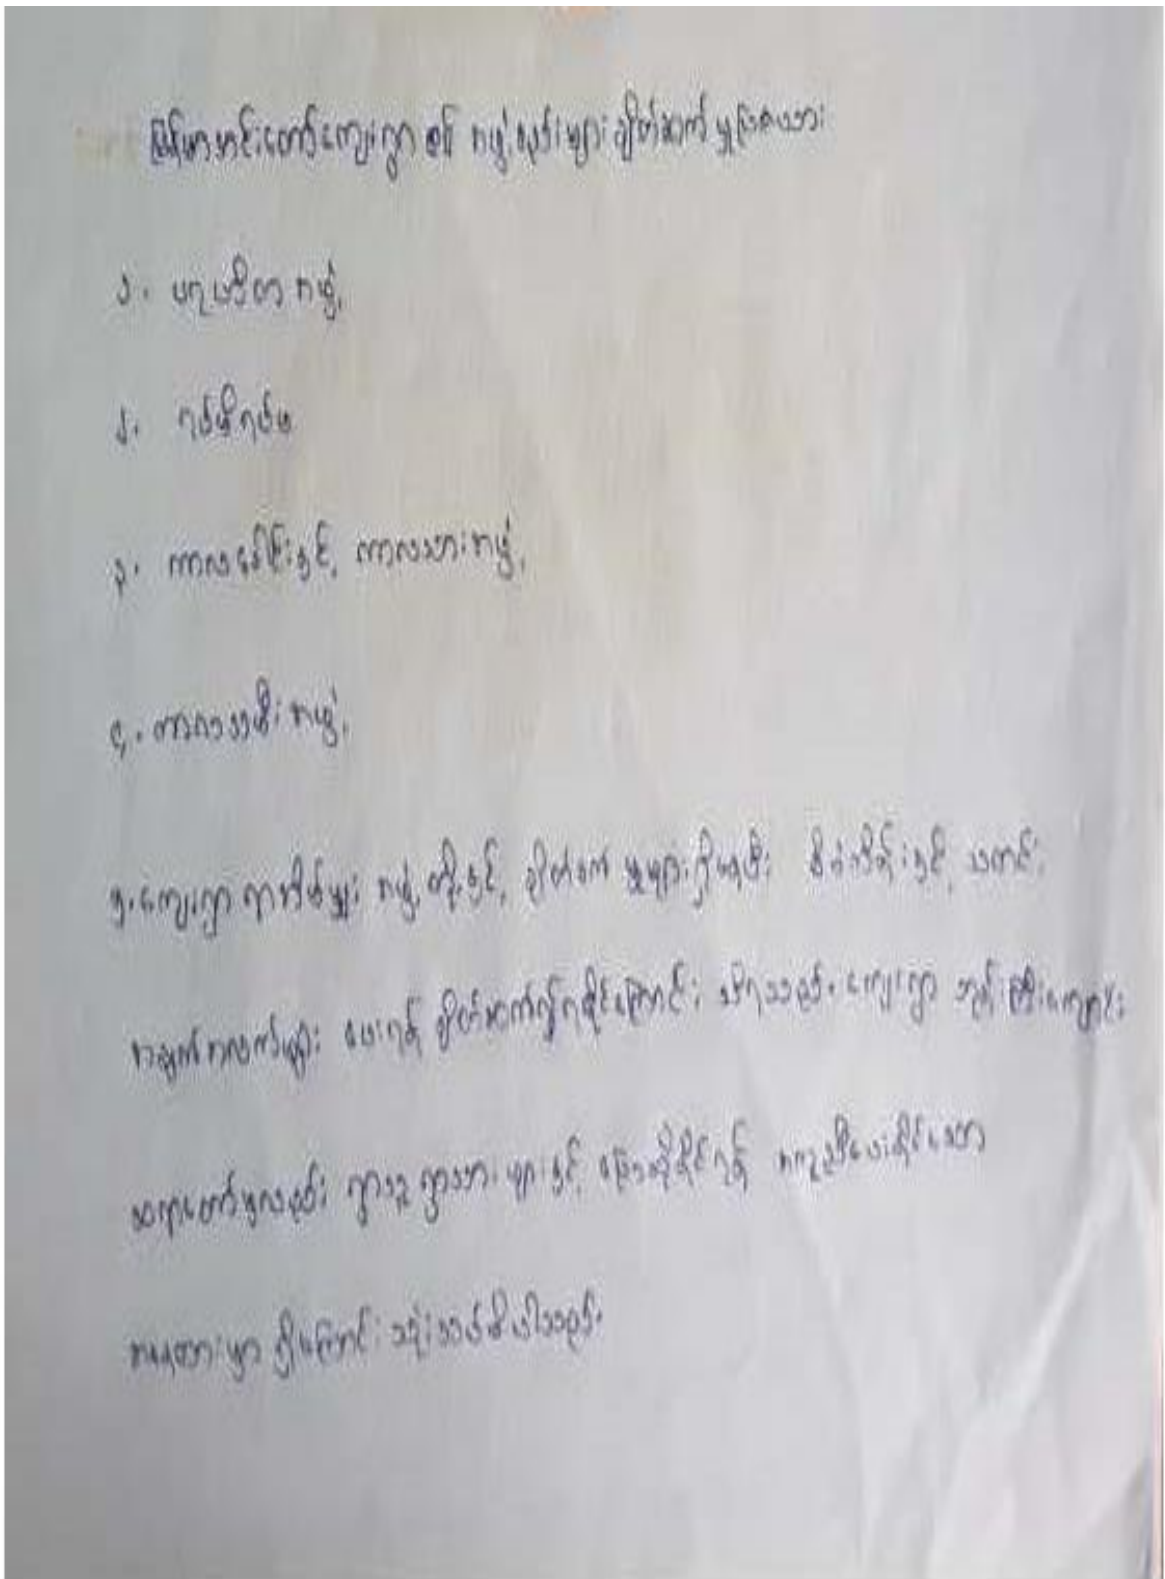 မြန်မာဟင်းတော်ကျေးရွာ တွင် အဖွဲ့စည်းများ ချိတ်ဆက်မှုပြဇယား
၁. မရပ်တ အဖွဲ့
၂. ရပ်မိရပ်ဖ
၃. ကာလခေါင်းနှင့် ကာလသားအဖွဲ့
၄. ကာလသမီး အဖွဲ့
၅. ကျေးရွာ ရာအိမ်မှူး အဖွဲ့ တို့နှင့် ချိတ်ဆက် မှုများ ရှိနေပြီး စီမံကိန်းနှင့် သတင်း
အချက်အလက်များ ပေးရန် ချိတ်ဆက်၍ရနိုင်ကြောင်း သိရသည်. ကျေးရွာ ဘုန်းကြီးကျောင်း
ဆရာတော်မှလည်း ရွာသူ ရွာသား များနှင့် ပြောဆိုနိုင်ရန် အကူညီပေးနိုင်သော
အနေထားမှာ ရှိကြောင်း သုံးသပ်မိပါသည်.